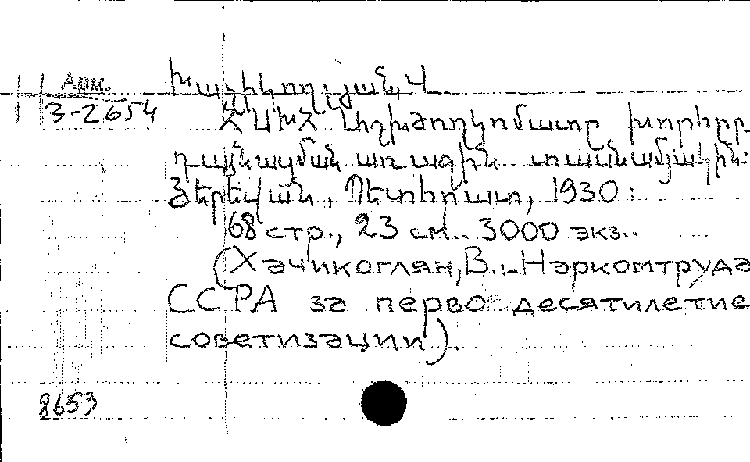 Арм.
3-2654
Խաչիկողլյան, Վ.
ՀՍԽՀ Աշխժողկոմատը խորհրդ
դայնացման առաջին տասնամյակին:
Յերեվան, Պետհրատ, 1930:
68 стр., 23 см. 3000 экз.
(Хачикоглян, В. - Наркомтруда
ССРА за перво десятилетие
советизации).
8653